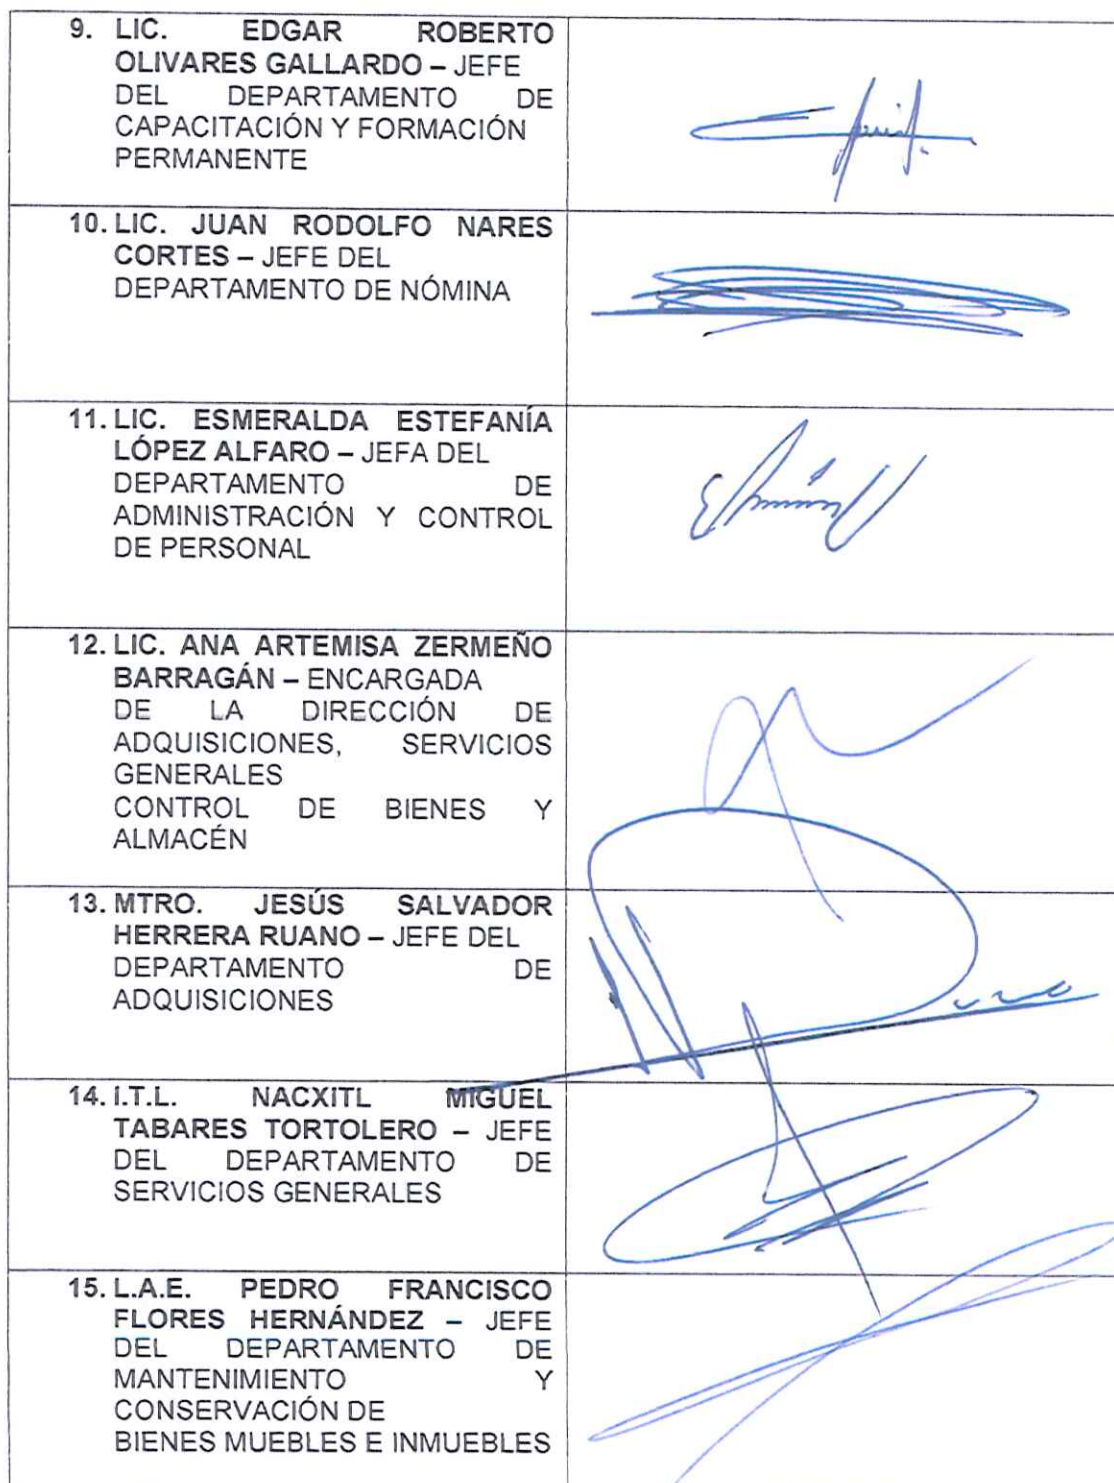 9. LIC. EDGAR ROBERTO
OLIVARES GALLARDO – JEFE
DEL DEPARTAMENTO DE
CAPACITACIÓN Y FORMACIÓN
PERMANENTE
10. LIC. JUAN RODOLFO NARES
CORTES – JEFE DEL
DEPARTAMENTO DE NÓMINA
11. LIC. ESMERALDA ESTEFANÍA
LÓPEZ ALFARO – JEFA DEL
DEPARTAMENTO DE
ADMINISTRACIÓN Y CONTROL
DE PERSONAL
12. LIC. ANA ARTEMISA ZERMEÑO
BARRAGÁN – ENCARGADA
DE LA DIRECCIÓN DE
ADQUISICIONES, SERVICIOS
GENERALES
CONTROL DE BIENES Y
ALMACÉN
13. MTRO. JESÚS SALVADOR
HERRERA RUANO – JEFE DEL
DEPARTAMENTO DE
ADQUISICIONES
14. I.T.L. NACXITL MIGUEL
TABARES TORTOLERO – JEFE
DEL DEPARTAMENTO DE
SERVICIOS GENERALES
15. L.A.E. PEDRO FRANCISCO
FLORES HERNÁNDEZ – JEFE
DEL DEPARTAMENTO DE
MANTENIMIENTO Y
CONSERVACIÓN DE
BIENES MUEBLES E INMUEBLES